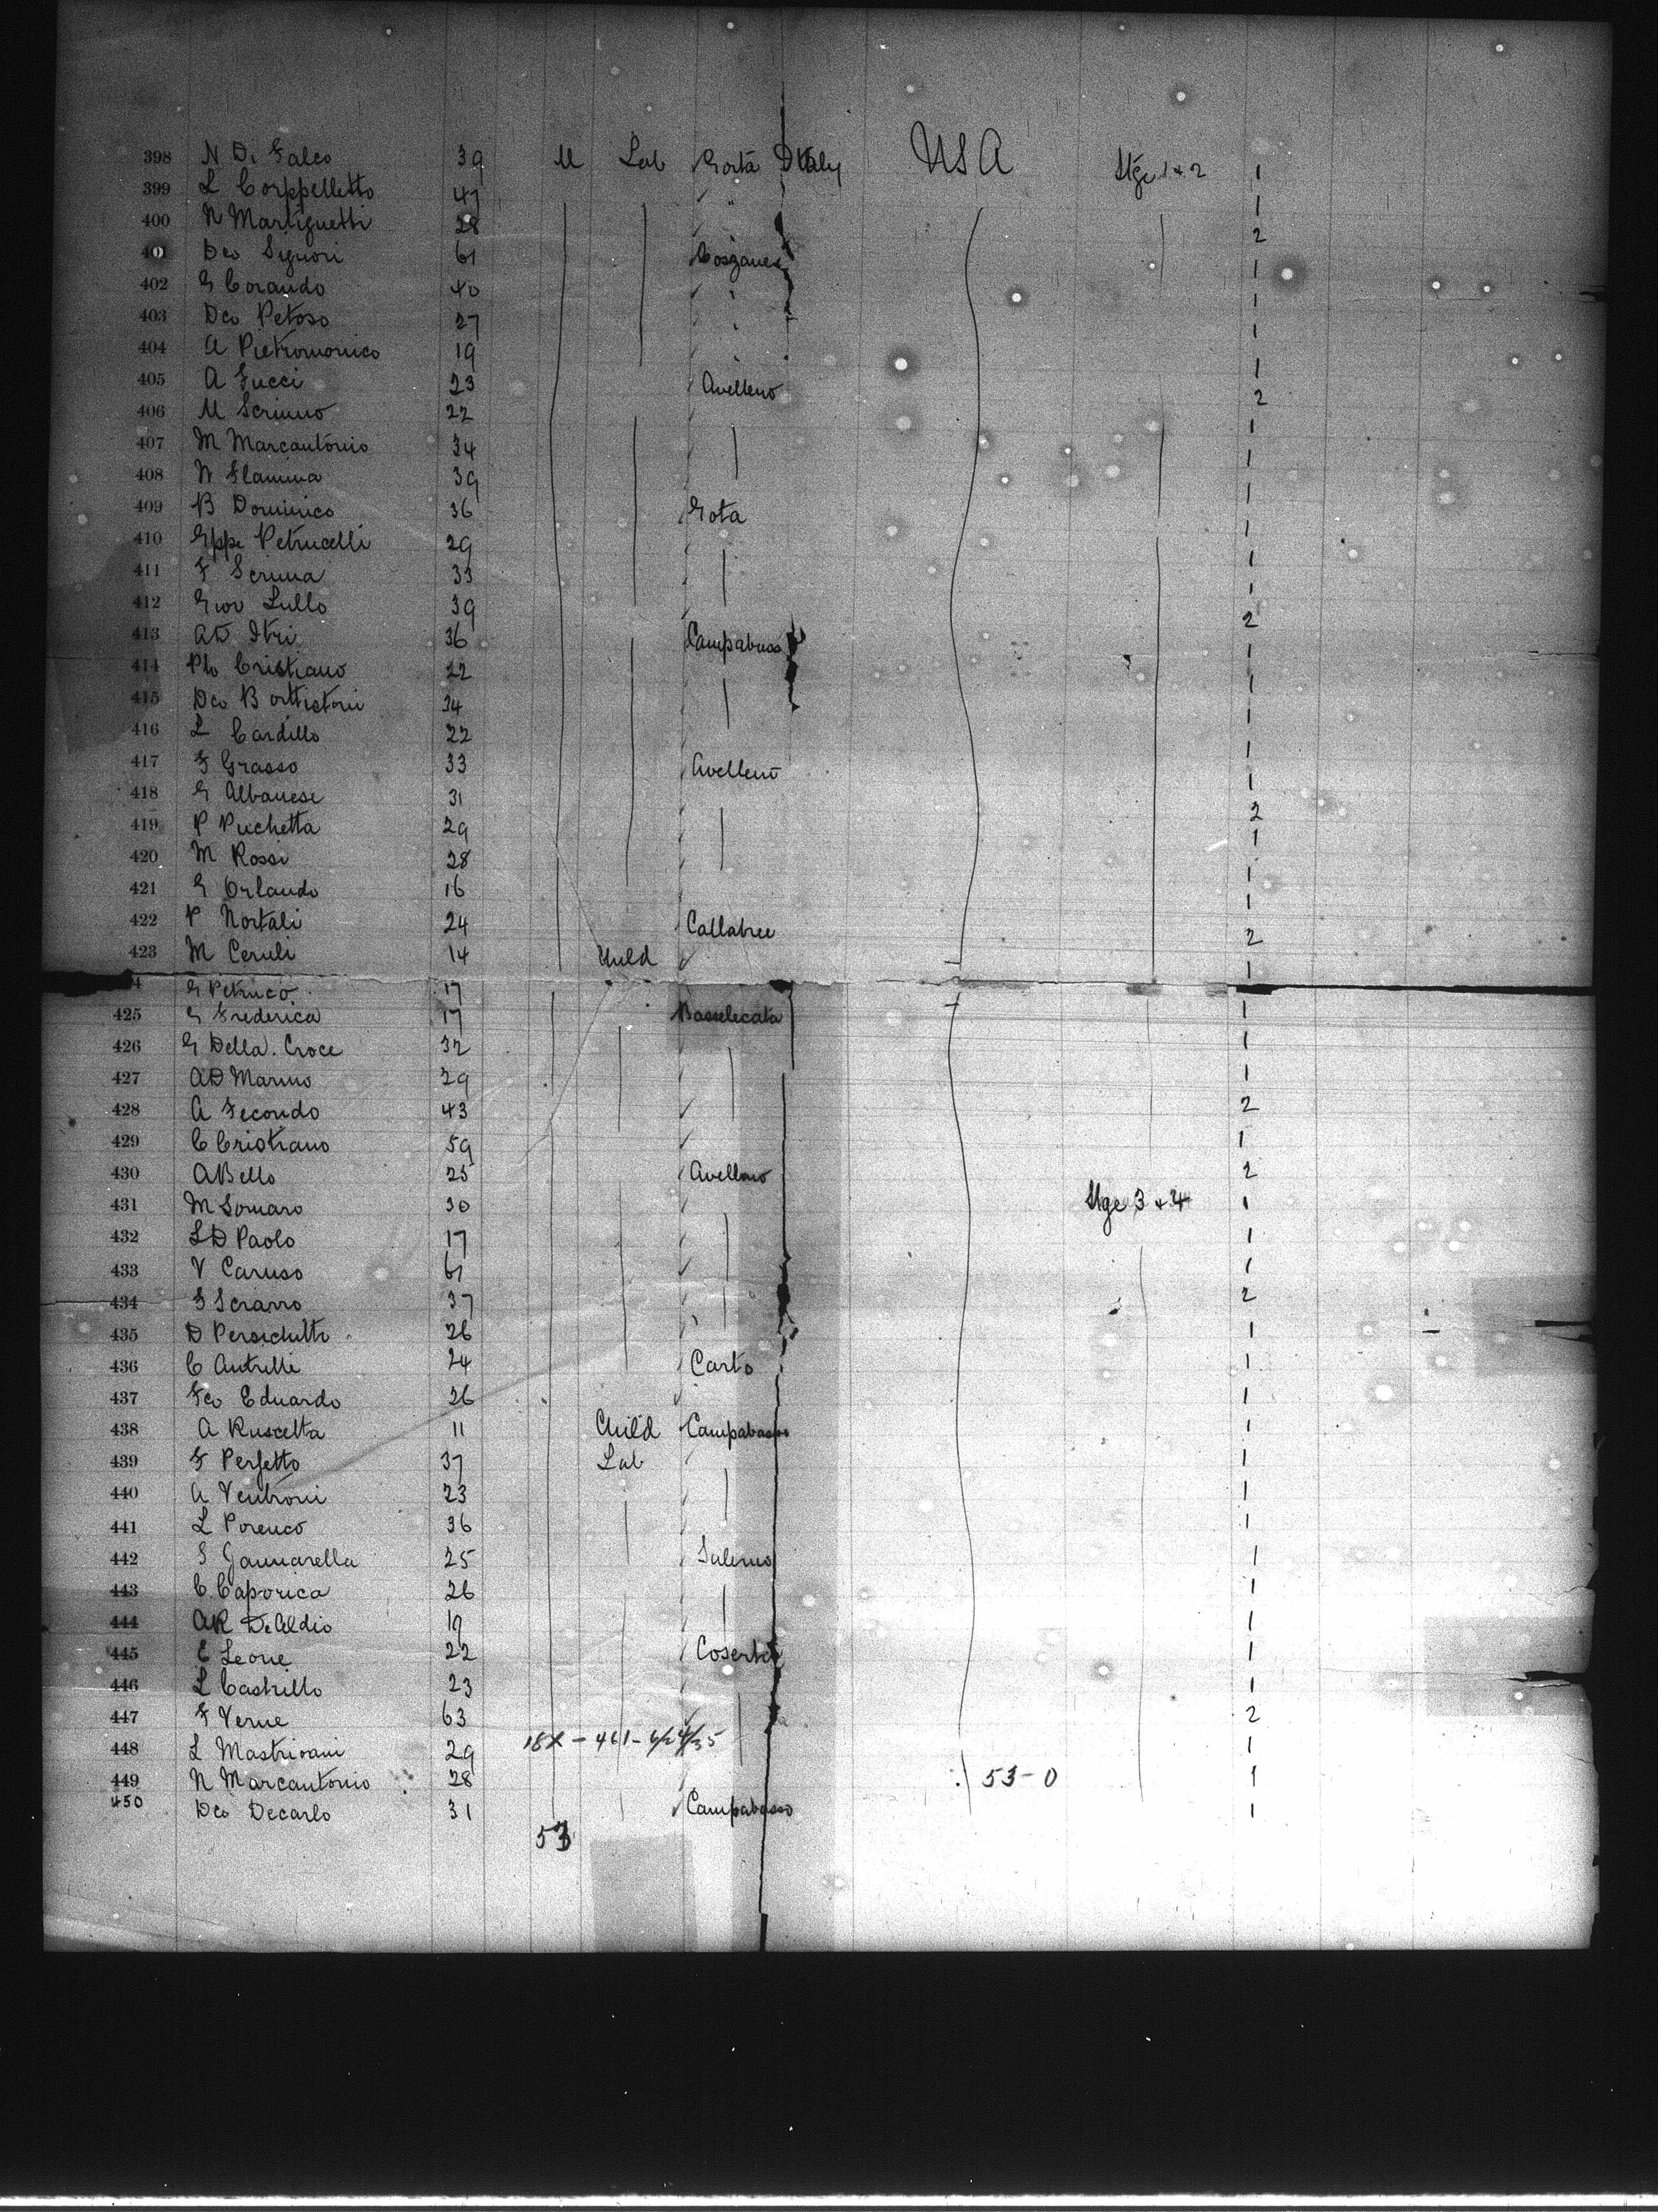 398 N Di Falco 39 M Lab Gorta Italy USA Stge 1+2 1
399 L Corppelletto 47 1
400 N Martiguetti 28 2
401 Dco Signori 61 1
402 G Corando 40 1
403 Dco Petoso 27 1
404 A Pietromonico 19 1
405 A Fucci 23 Avelleno 2
406 M Scrimno 22 1
407 M Marcantonio 34 1
408 N Flamma 39 1
409 B Dominico 36 Gota 1
410 Gppe Petrucelli 29 1
411 F Serima 33 1
412 Giov Lullo 39 2
413 AD Itri 36 Campabuss 1
414 Plo Cristiano 22 1
415 Dco Battistoni 34 1
416 L Cardillo 22 1
417 F Grasso 33 Avelleno 1
418 G Albanese 31 2
419 P Puchetta 29 1
420 M Rossi 28 1
421 G Orlando 16 1
422 P Nortali 24 Callabree 2
423 M Ceruli 14 Child 1
4 G Petruco 17
425 G Frederica 17 Basselecata 1
426 G Della. Croce 32 1
427 AD Marino 29 1
428 A Fecondo 43 2
429 C Cristiano 59 1
430 A Bello 25 Avelleno 2
431 M Somaro 30 Stge 3+4 1
432 LD Paolo 17 1
433 V Caruso 61 1
434 G Scrarro 37 2
435 D Persichitti 26 1
436 C Antrilli 24 Carto 1
437 Fco Eduardo 26 1
438 A Ruscetta 11 Child Campabasso 1
439 F Perfetto 37 Lab 1
440 A Ventroni 23 1
441 L Porenco 36 1
442 G Gannarella 25 Salerno 1
443 C Caporica 26 1
444 AR DeAldio 19 1
445 E Leone 22 Coserta 1
446 L Castrillo 23 1
447 F Verne 63 2
448 L Mastrioani 29 18X - 461 - 6/24/35 1
449 N Marcantonio 28 53-0 1
450 Dco Decarlo 31 Campabasso 1
53